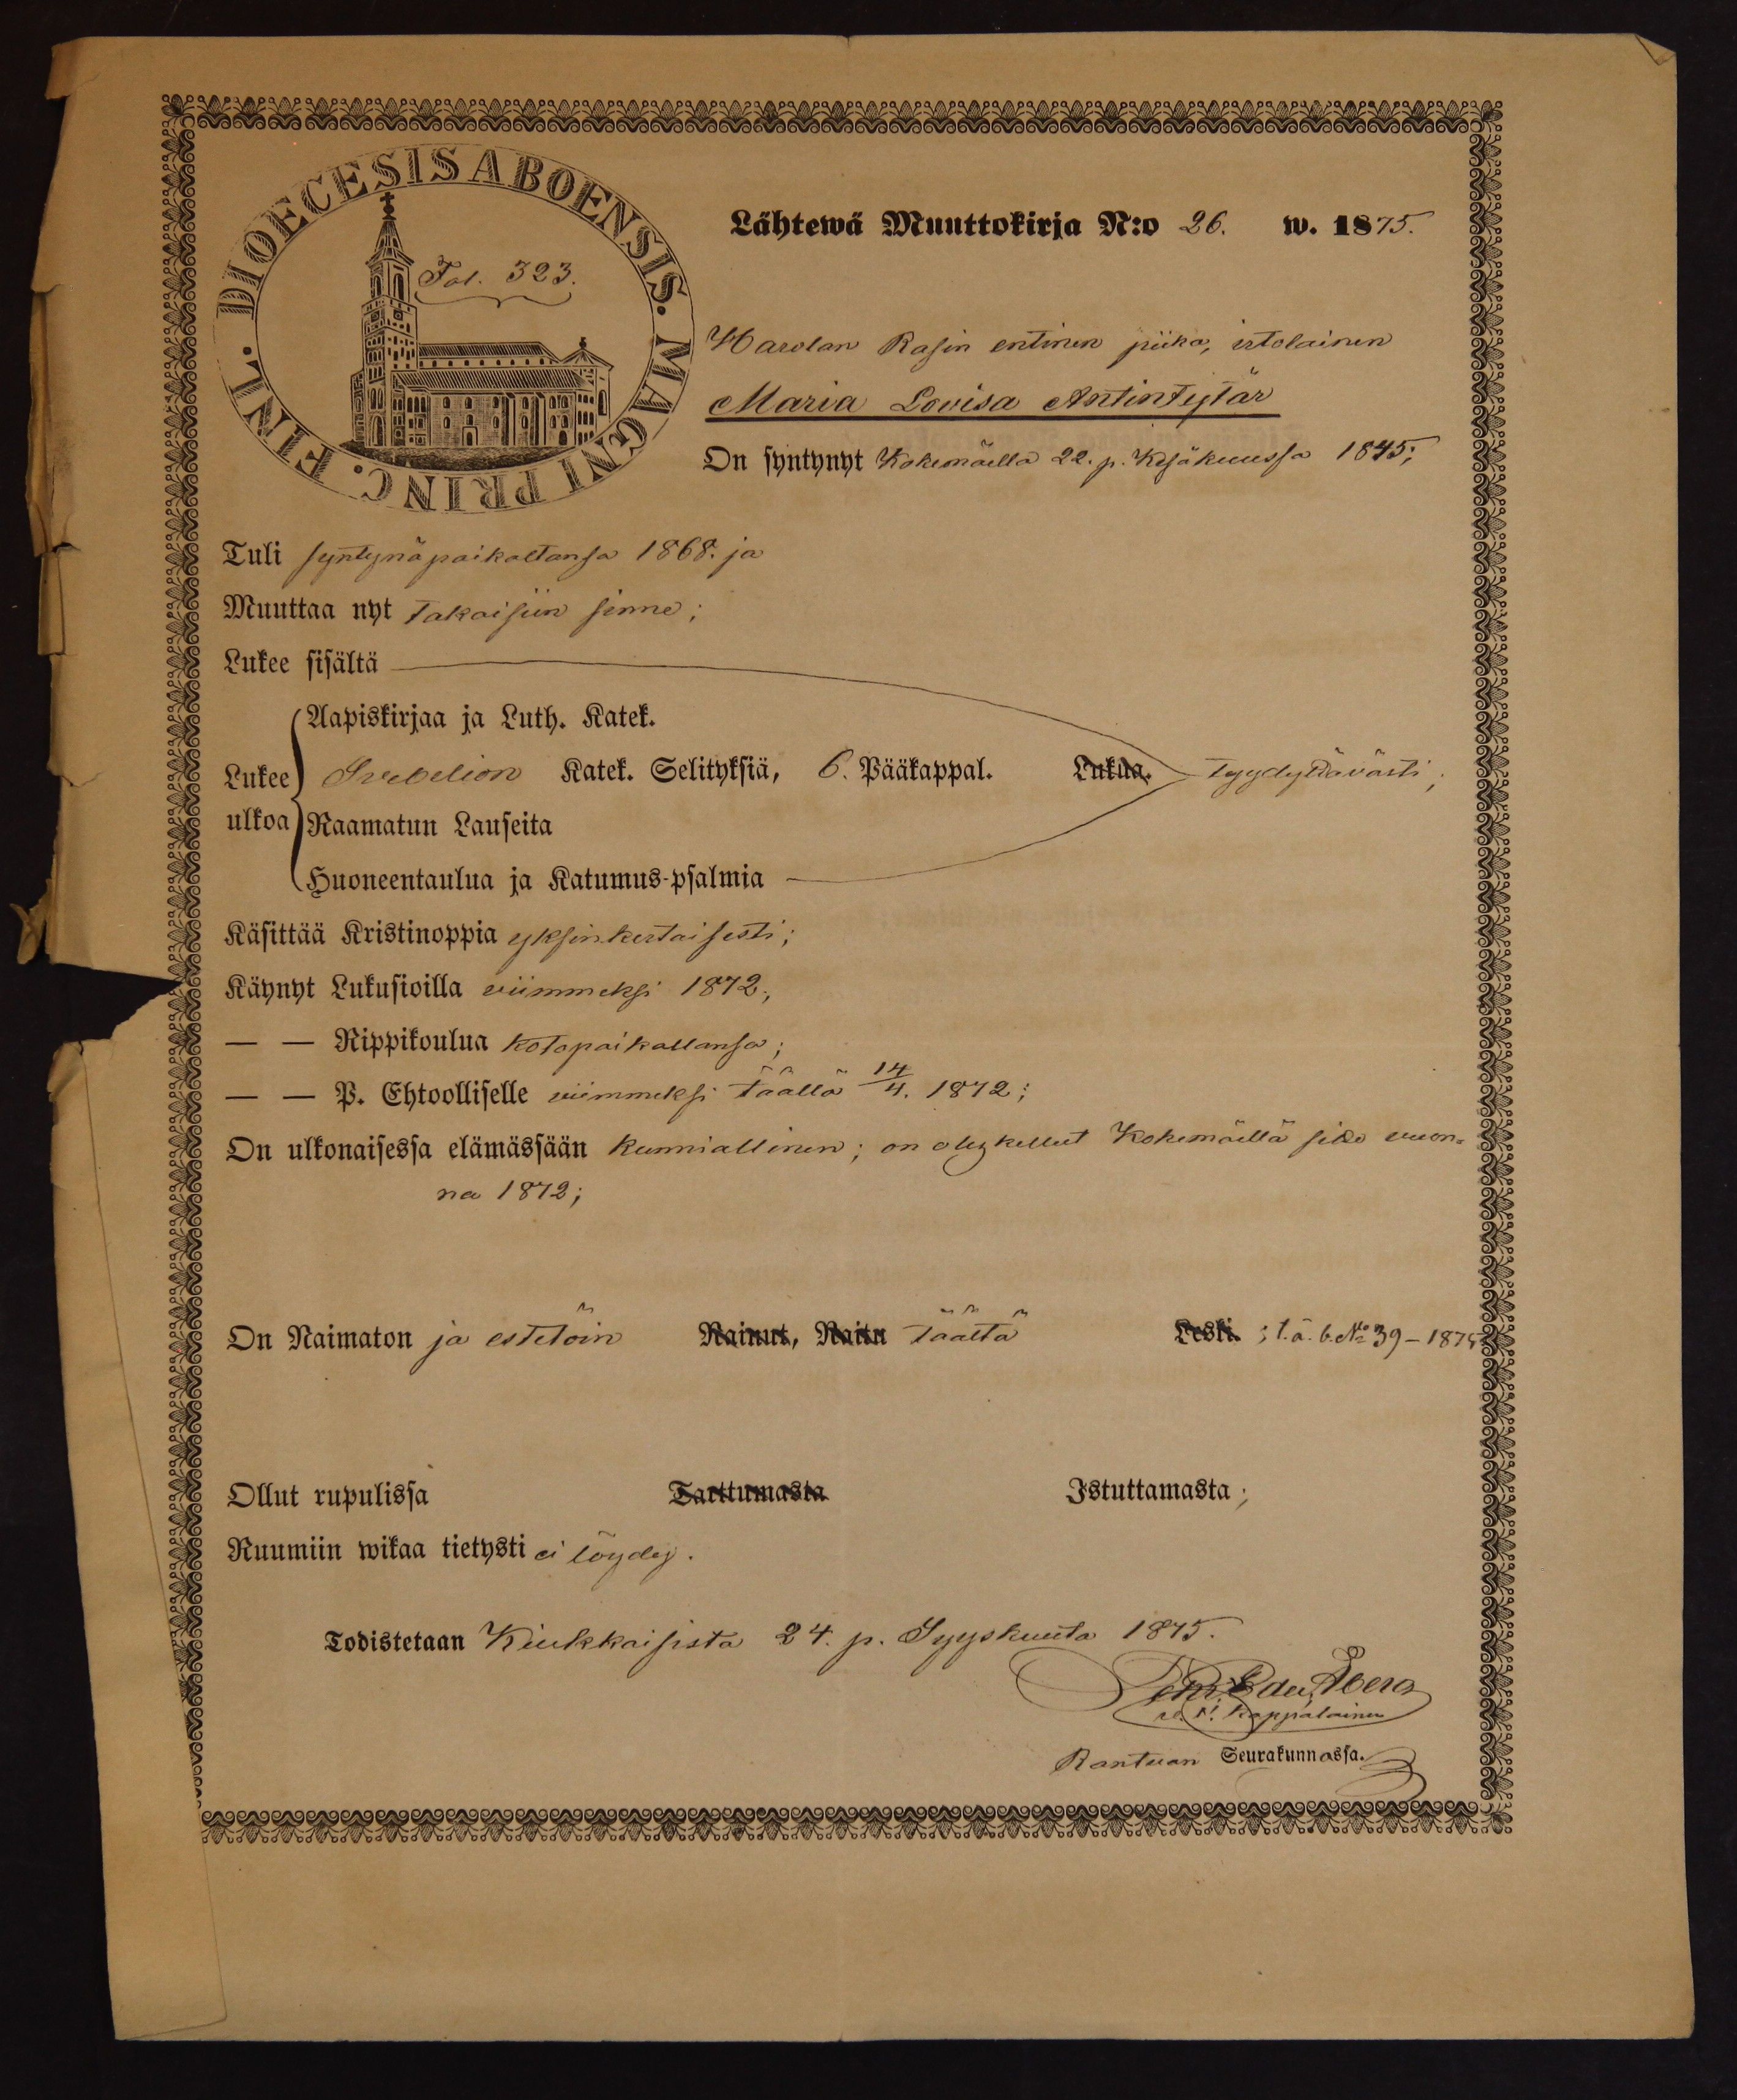 DIOECESIS ABOENSIS. MAGNI PRINC. FINL.
Fol. 323.
Lähtewä Muuttokirja N:o 26. w. 1875.
Harolan Rasin entinen piika, irtolainen
Maria Lovisa Antintytär
On syntynyt Kokemäellä 22. p. Kesäkuussa 1845;
Tuli syntynäpaikaltansa 1868. ja
Muuttaa nyt takaisiin sinne;
Lukee sisältä
Aapiskirjaa ja Luth. Katek.
Lukee Svebelion Katek. Selityksiä, 6. Pääkappal. Lukua. tyydyttävästi;
ulkoa Raamatun Lauseita
Huoneentaulua ja Katumus-psalmia
Käsittää Kristinoppia yksinkertaisesti;
Käynyt Lukusioilla viimmeksi 1872;
— — Rippikoulua kotopaikallansa;
— — P. Ehtoolliselle viimmeksi täällä 14/4. 1872;
On ulkonaisessa elämässään kunniallinen; on oleskellut Kokemäellä sitte vuon-
na 1872;
On Naimaton ja estetöin Nainut, Naitu täältä Leski. ; t.ä. b. No 39 - 1875
Ollut rupulissa Tarttumasta Istuttamasta;
Ruumiin wikaa tietysti ei löydy.
Todistetaan Kiukkaisista 24. p. Syyskuuta 1875.
Edv. Åberg
Kappalainen
Seurakunnassa.